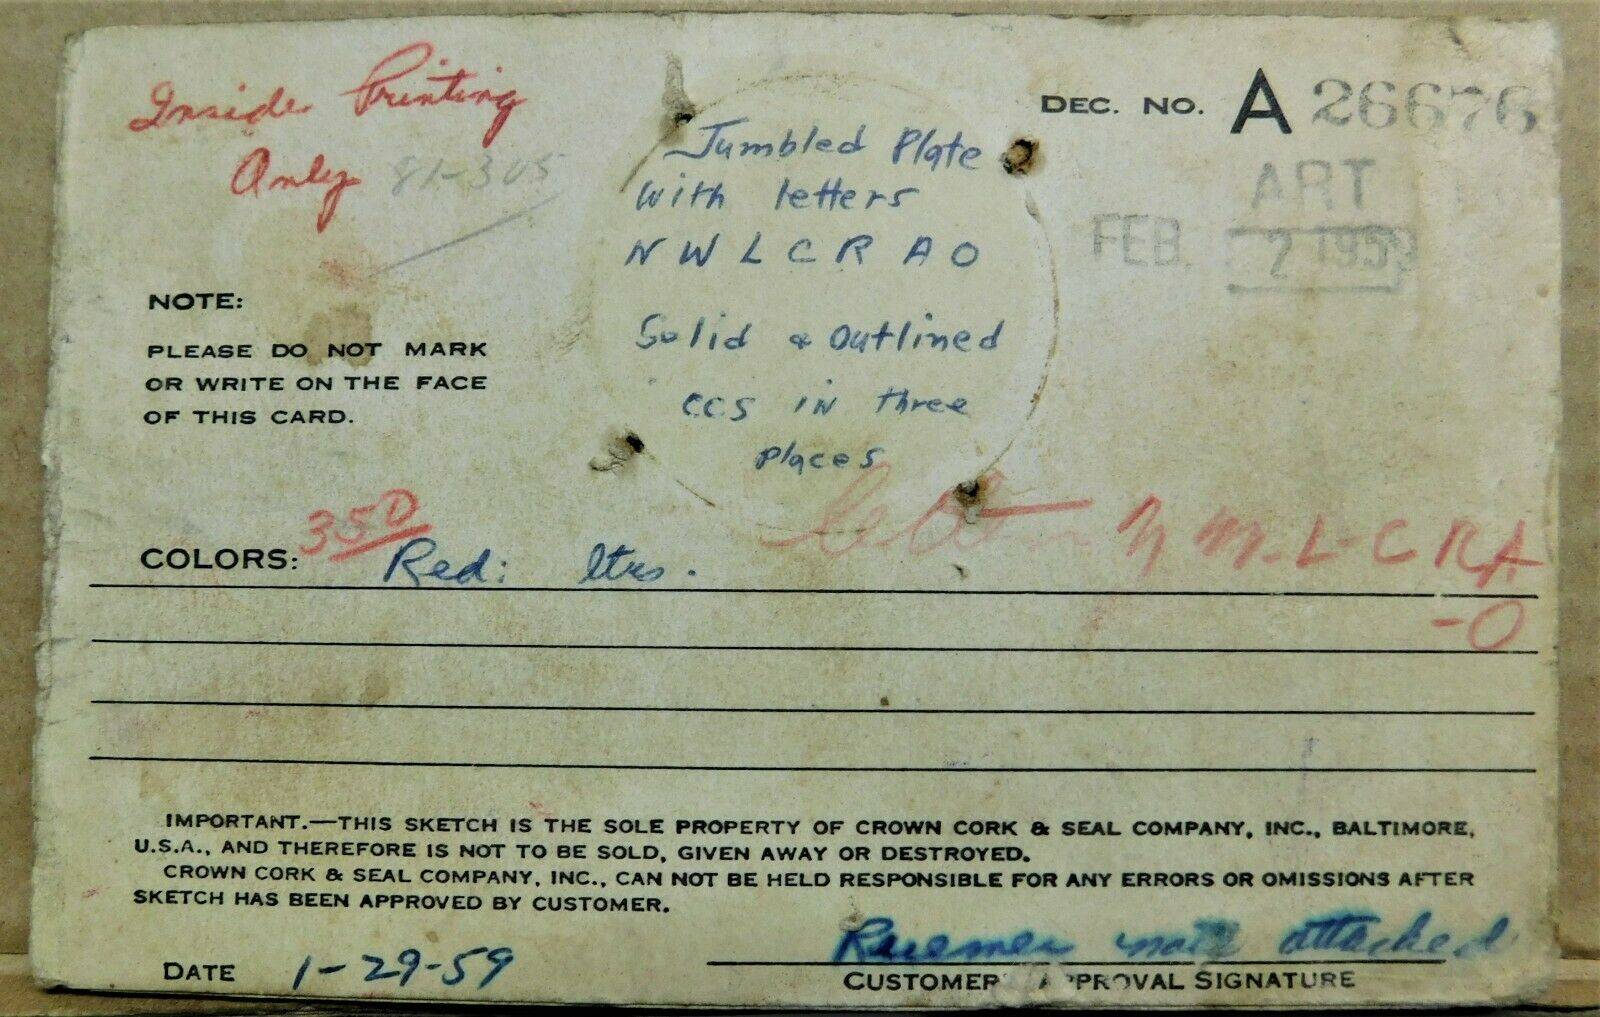 Inside Printing
Only 81-305
Jumbled Plate
with letters
N W L C R A O
Solid & Outlined
CCS IN three
places
DEC. NO. A 26676
ART
FEB. 2 1959
NOTE:
PLEASE DO NOT MARK
OR WRITE ON THE FACE
OF THIS CARD.
COLORS: 350 Red: ltrs.
letter N W-L-C R A
-O
IMPORTANT.—THIS SKETCH IS THE SOLE PROPERTY OF CROWN CORK & SEAL COMPANY, INC., BALTIMORE,
U.S.A., AND THEREFORE IS NOT TO BE SOLD, GIVEN AWAY OR DESTROYED.
CROWN CORK & SEAL COMPANY, INC., CAN NOT BE HELD RESPONSIBLE FOR ANY ERRORS OR OMISSIONS AFTER
SKETCH HAS BEEN APPROVED BY CUSTOMER.
DATE 1-29-59
attached
CUSTOMER APPROVAL SIGNATURE